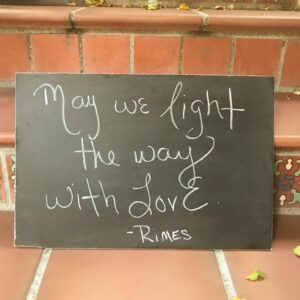 May we light
the way
with LovE.
-RIMES